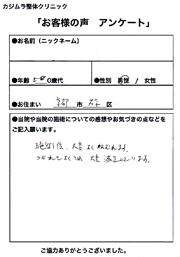 カジムラ整体クリニック
「お客様の声 アンケート」
●お名前（ニックネーム）
●年齢 5-60歳代 ●性別 男性 / 女性
●お住まい 市 区
●当院や当院の施術についての感想やお気づきの点などをご記入願います。
施術後、大変よく
大変満足しています。
ご協力ありがとうございました。